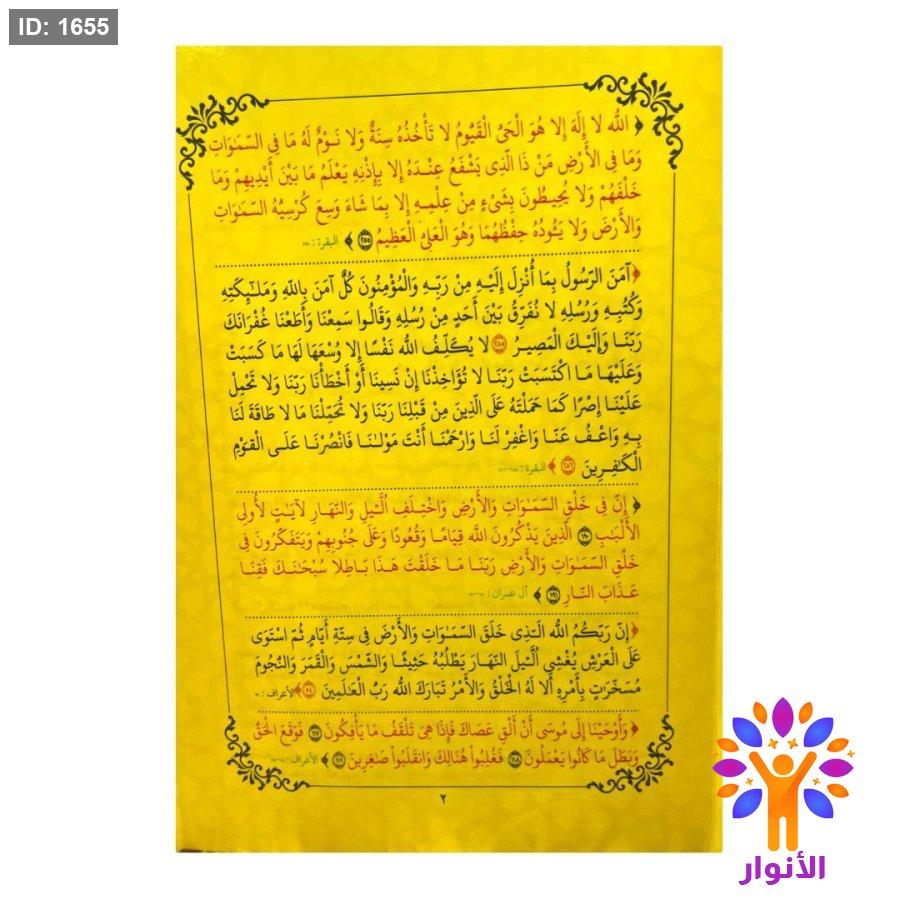 ID: 1655
﴿ اللَّه لا إِلَهَ إِلا هُوَ الْحَيُّ الْقَيُّومُ لا تَأْخُذُهُ سِنَةٌ وَلا نَوْمٌ لَهُ مَا فِي السَّمَوَاتِ
وَمَا فِي الأَرْضِ مَنْ ذَا الَّذِى يَشْفَعُ عِنْدَهُ إِلا بِإِذْنِهِ يَعْلَمُ مَا بَيْنَ أَيْدِيهِمْ وَمَا
خَلْفَهُمْ وَلا يُحِيطُونَ بِشَيْءٍ مِنْ عِلْمِهِ إِلا بِمَا شَاءَ وَسِعَ كُرْسِيُّهُ السَّمَوَاتِ
وَالأَرْضَ وَلا يَئُودُهُ حِفْظُهُمَا وَهُوَ الْعَلِيُّ الْعَظِيمُ ٢٥٥ ﴾ البقرة : ٢٥٥
﴿ آمَنَ الرَّسُولُ بِمَا أُنْزِلَ إِلَيْهِ مِنْ رَبِّهِ وَالْمُؤْمِنُونَ كُلٌّ آمَنَ بِاللَّهِ وَمَلَٰئِكَتِهِ
وَكُتُبِهِ وَرُسُلِهِ لا نُفَرِّقُ بَيْنَ أَحَدٍ مِنْ رُسُلِهِ وَقَالُوا سَمِعْنَا وَأَطَعْنَا غُفْرَانَكَ
رَبَّنَا وَإِلَيْكَ الْمَصِيرُ ٢٨٥ لا يُكَلِّفُ اللَّه نَفْسًا إِلا وُسْعَهَا لَهَا مَا كَسَبَتْ
وَعَلَيْهَا مَا اكْتَسَبَتْ رَبَّنَا لا تُؤَاخِذْنَا إِنْ نَسِينَا أَوْ أَخْطَأْنَا رَبَّنَا وَلا تَحْمِلْ
عَلَيْنَا إِصْرًا كَمَا حَمَلْتَهُ عَلَى الَّذِينَ مِنْ قَبْلِنَا رَبَّنَا وَلا تُحَمِّلْنَا مَا لا طَاقَةَ لَنَا
بِهِ وَاعْفُ عَنَّا وَاغْفِرْ لَنَا وَارْحَمْنَا أَنْتَ مَوْلَٰنَا فَانْصُرْنَا عَلَى الْقَوْمِ
الْكَٰفِرِينَ ٢٨٦ ﴾ البقرة :
﴿ إِنَّ فِي خَلْقِ السَّمَٰوَاتِ وَالأَرْضِ وَاخْتِلَٰفِ الَّيْلِ وَالنَّهَارِ لآيَاتٍ لأُولِى
الأَلْبَٰبِ ١٩٠ الَّذِينَ يَذْكُرُونَ اللَّهَ قِيَامًا وَقُعُودًا وَعَلَى جُنُوبِهِمْ وَيَتَفَكَّرُونَ فِى
خَلْقِ السَّمَٰوَاتِ وَالأَرْضِ رَبَّنَا مَا خَلَقْتَ هَذَا بَاطِلا سُبْحَٰنَكَ فَقِنَا
عَذَابَ النَّارِ ١٩١ ﴾ آل عمران :
﴿ إِنَّ رَبَّكُمُ اللَّه الَّذِى خَلَقَ السَّمَوَاتِ وَالأَرْضَ فِى سِتَّةِ أَيَّامٍ ثُمَّ اسْتَوَى
عَلَى الْعَرْشِ يُغْشِى الَّيْلَ النَّهَارَ يَطْلُبُهُ حَثِيثًا وَالشَّمْسَ وَالْقَمَرَ وَالنُّجُومَ
مُسَخَّرَتٍ بِأَمْرِهِ أَلَا لَهُ الْخَلْقُ وَالأَمْرُ تَبَارَكَ اللَّه رَبُّ الْعَٰلَمِينَ ٥٤ ﴾ الأعراف :
﴿ وَأَوْحَيْنَا إِلَى مُوسَى أَنْ أَلْقِ عَصَاكَ فَإِذَا هِيَ تَلْقَفُ مَا يَأْفِكُونَ ١١٧ فَوَقَعَ الْحَقُّ
وَبَطَلَ مَا كَانُوا يَعْمَلُونَ ١١٨ فَغُلِبُوا هُنَالِكَ وَانقَلَبُوا صَٰغِرِينَ ١١٩ ﴾ الأعراف :
٢
الأنوار